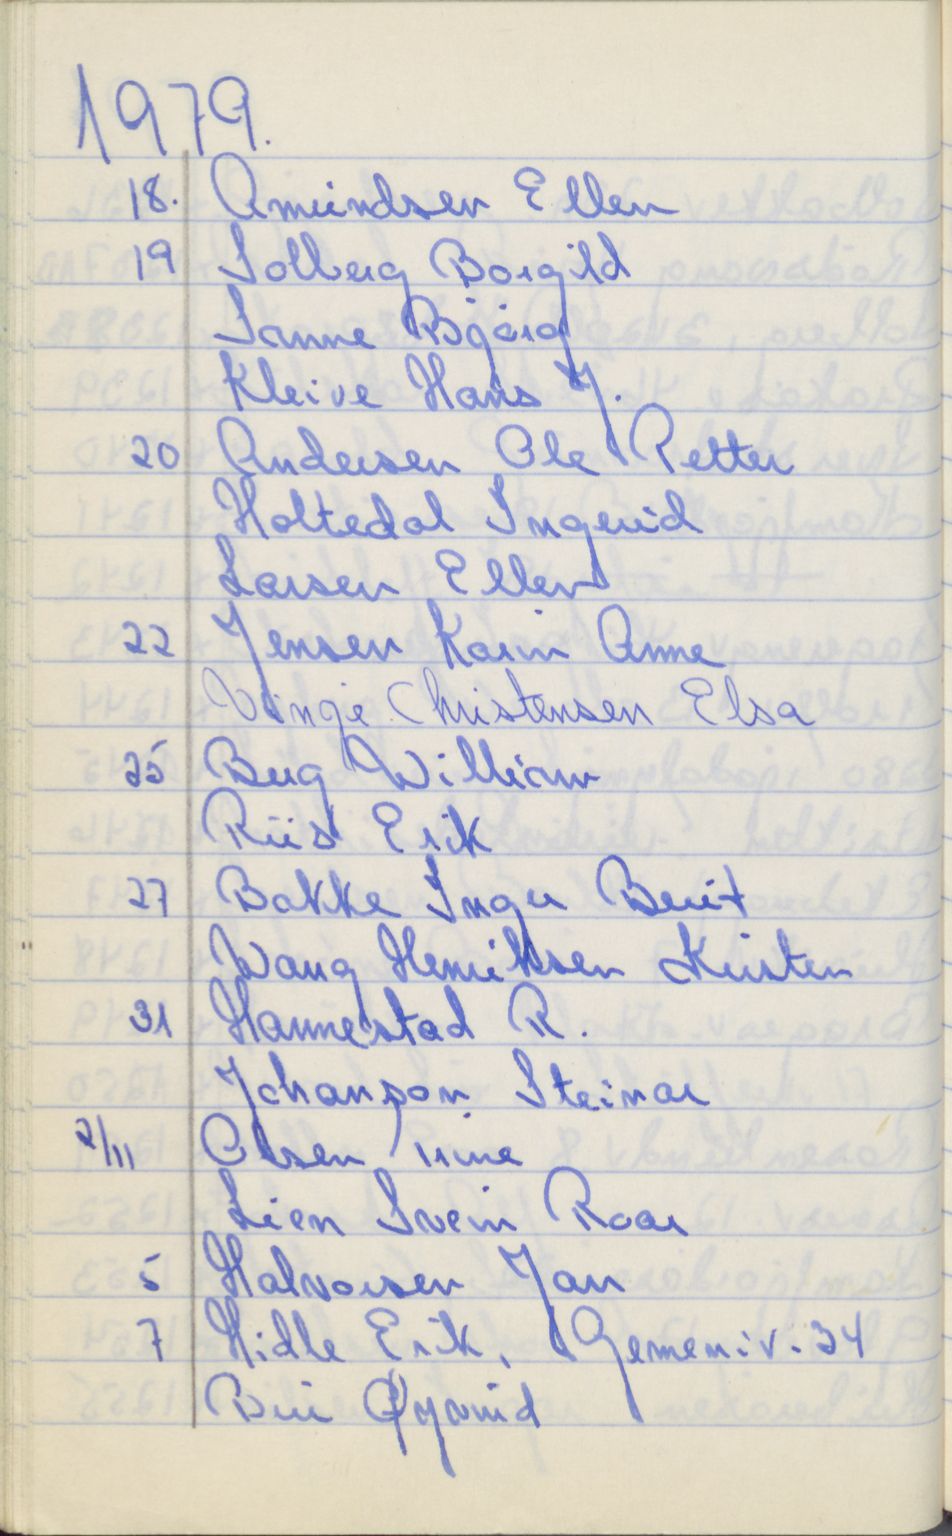 1979.
18. Amundsen Ellen
19 Solberg Borgild
Sanne Bjørg
Kleive Hans J.
20 Andersen Ole Petter
Holtedal Ingerid
Larsen Ellen
22 Jensen Karin Anne
Vinje Christensen Elsa
25 Berg William
Riis Erik
27 Bakke Inger Berit
Wang Henriksen Kirsten
31 Hannestad R.
Johanson Steinar
2/11 Olsen Trine
Lien Svein Roar
5 Halvorsen Jan
7 Hidle Erik, 34
Øyvind